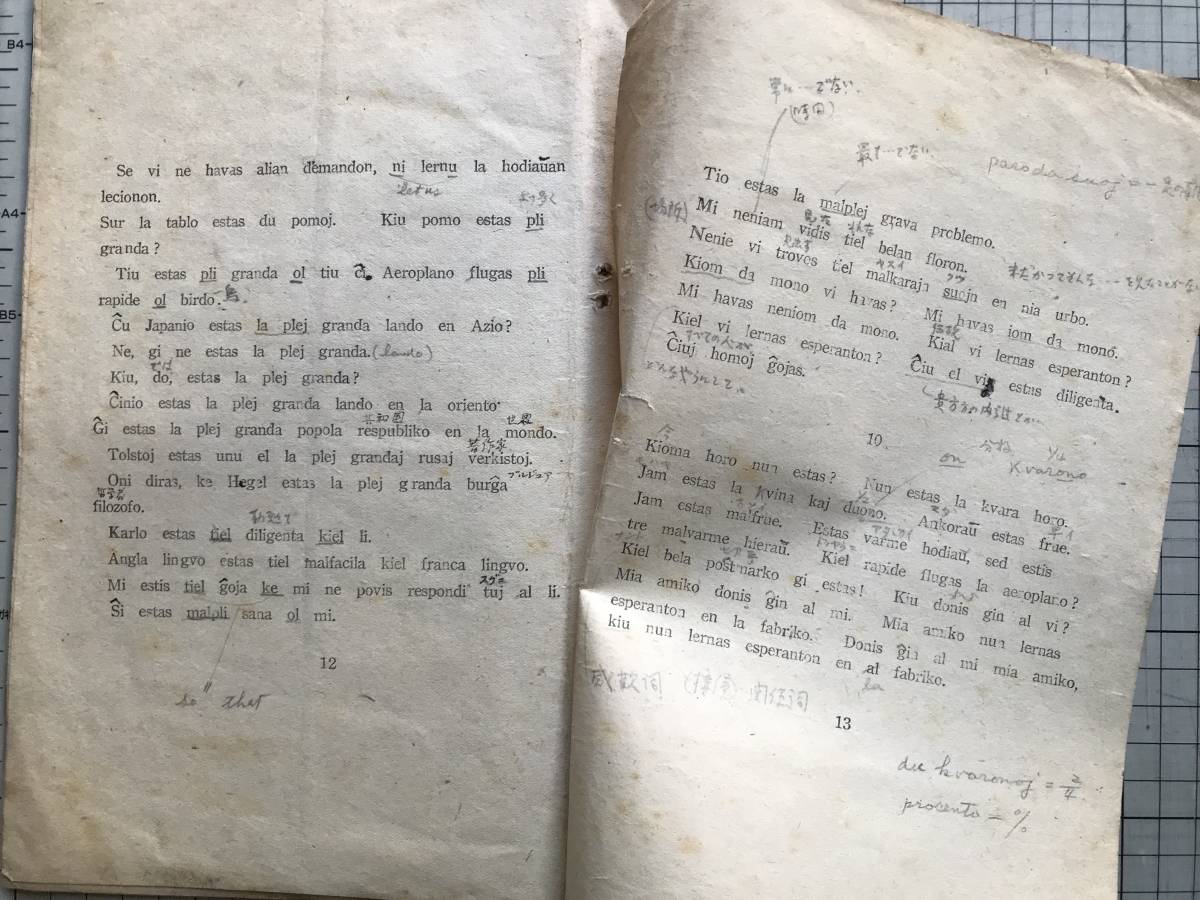 Se vi ne havas alian demandon, ni lernu la hodiaŭan
let us
lecionon.
Sur la tablo estas du pomoj. Kiu pomo estas pli
granda?
Tiu estas pli granda ol tiu ĉi. Aeroplano flugas pli
rapide ol birdo. 鳥
Ĉu Japanio estas la plej granda lando en Azio?
Ne, gi ne estas la plej granda. (lando)
では
Kiu, do, estas la plej granda?
Ĉinio estas la plej granda lando en la oriento
共和国 世界
Ĝi estas la plej granda popola respubliko en la mondo.
著作家
Tolstoj estas unu el la plej grandaj rusaj verkistoj.
ブルジュア
Oni diras, ke Hegel estas la plej granda burĝa
哲学者
filozofo.
勤勉ナ
Karlo estas tiel diligenta kiel li.
Angla lingvo estas tiel malfacila kiel franca lingvo.
スグニ
Mi estis tiel ĝoja ke mi ne povis respondi tuj al li.
Ŝi estas malpli sana ol mi.
12
so that
常に…でない
(時間)
最も…でない
Tio estas la malplej grava problemo.
(場所)
Mi neniam vidis tiel belan floron.
Nenie vi trovos tiel malkarajn ŝuojn en nia urbo.
Kiom da mono vi havas? Mi havas iom da mono.
Mi havas neniom da mono. Kial vi lernas esperanton?
Kiel vi lernas esperanton? Ĉiu el vi estas diligenta.
すべての人が
Ĉiuj homoj ĝojas.
10
on
1/4
Kvarono
今
Kioma horo nun estas? Nun estas la kvara horo.
Jam estas la kvina kaj duono. Ankoraŭ estas frue.
Jam estas malfrue. Estas varme hodiaŭ, sed estis
tre malvarme hieraŭ. Kiel rapide flugas la aeroplano?
Kiel bela poŝtmarko gi estas! Kiu donis gin al vi?
Mia amiko donis ĝin al mi. Mia amiko nun lernas
esperanton en la fabriko. Donis ĝin al mi mia amiko,
kiu nun lernas esperanton en al fabriko.
la
感歎詞 関係詞
13
du kvaronoj = 2/4
procento = %